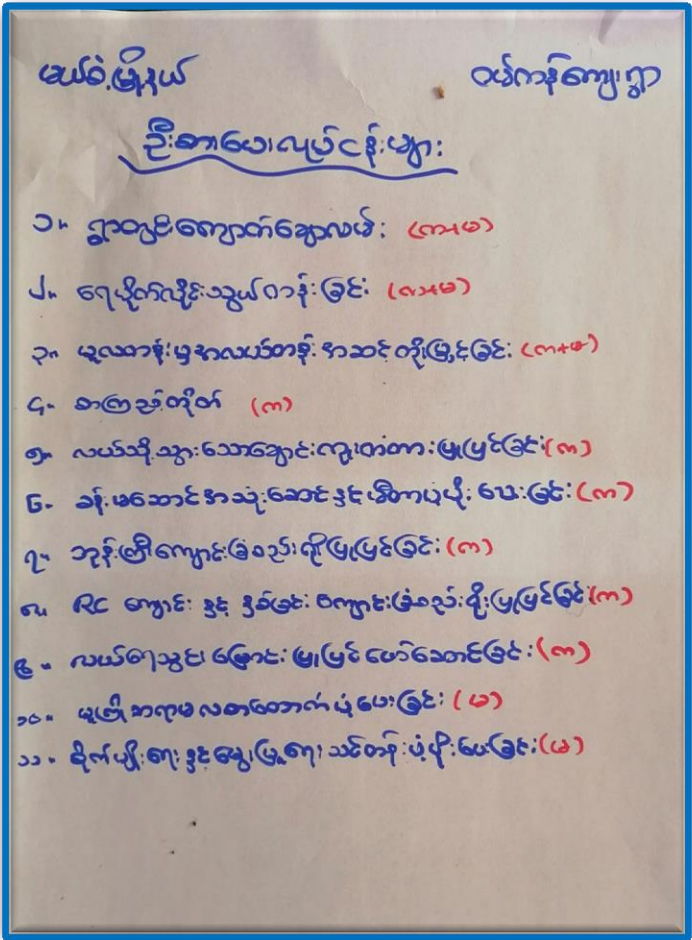 မယ်စဲ့မြို့နယ် ဝမ်ကန်ကျေးရွာ
ဦးစားပေးလုပ်ငန်းများ
၁။ ရွာတွင်းကျောက်ချောလမ်း (က+မ)
၂။ ရေပိုက်လိုင်းသွယ်တန်းခြင်း (က+မ)
၃။ မူလတန်းမှအလယ်တန်းအဆင့်တိုးမြှင့်ခြင်း (က+မ)
၄။ စာကြည့်တိုက် (က)
၅။ လယ်သို့သွားသောချောင်းကူးတံတားပြုပြင်ခြင်း(က)
၆။ ခန်းမဆောင်အသုံးဆောင်နှင့် မီတာပံ့ပိုးပေးခြင်း (က)
၇။ ဘုန်းကြီးကျောင်းခြံစည်းရိုးပြုပြင်ခြင်း (က)
၈။ RC ကျောင်း နှင့် နှစ်ခြင်း ကျောင်းခြံစည်းရိုးပြုပြင်ခြင်း(က)
၉။ လယ်ရေသွင်းမြောင်းပြုပြင်ဖော်ဆောင်ခြင်း (က)
၁၀။ မူကြိုဆရာမလစာထောက်ပံ့ပေးခြင်း (မ)
၁၁။ စိုက်ပျိုးရေးနှင့်မွေးမြူရေးသင်တန်းပံ့ပိုးပေးခြင်း(မ)